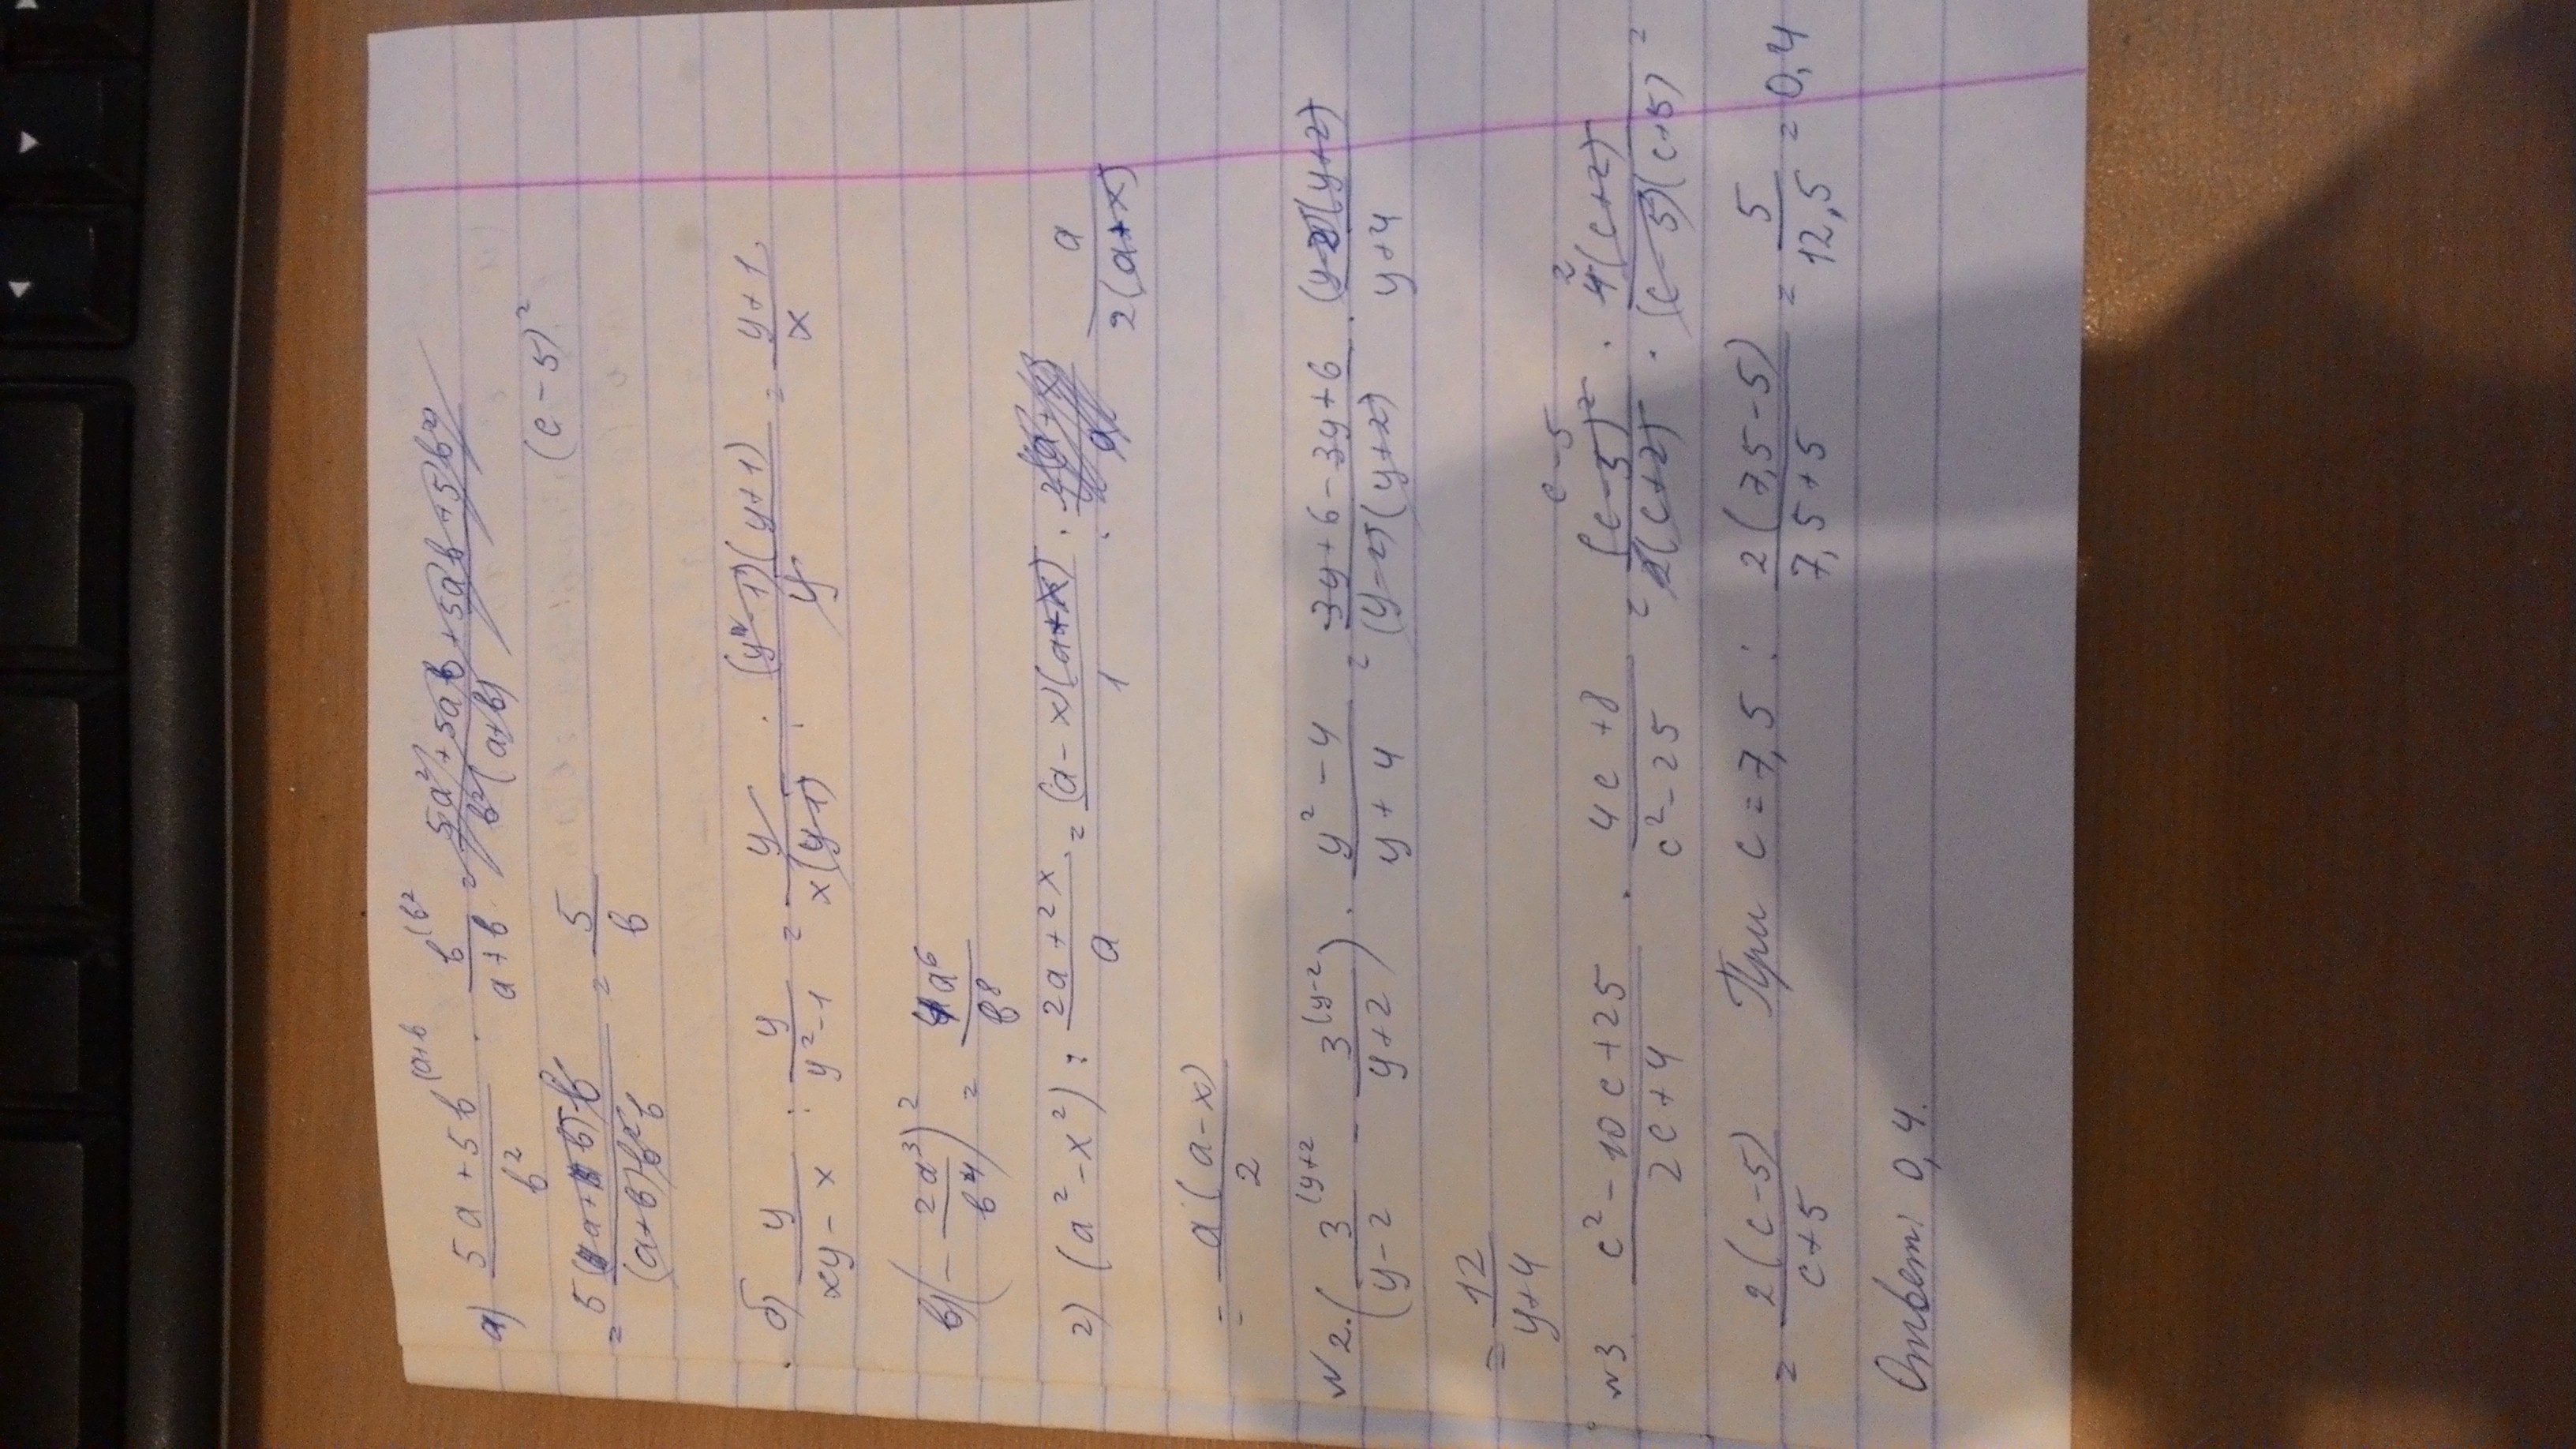 а) (5a + 5b)/b² (a+b · b/(a + b) (b² = (5a² + 5ab + 5ab + 5b²)/(b²(a+b))
= 5(a + b) b/((a+b) b² b) = 5/b (c – 5)²
б) y/(xy – x) : y/(y² – 1) = y/(x(y–1)) · (y – 1)(y + 1)/y = (y + 1)/x
в) (– 2a³/b⁴)² = 4a⁶/b⁸
г) (a² – x²) : (2a + 2x)/a = (a – x)(a+x)/1 · a/(2(a+x))
= a(a – x)/2
N 2. (3/(y – 2) (y+2 – 3/(y + 2) (y–2) · (y² – 4)/(y + 4) = (3y + 6 – 3y + 6)/((y – 2)(y+2)) · (y–2)(y+2)/(y + 4)
= 12/(y+4)
N3 (c² – 10c + 25)/(2c + 4) · (4c + 8)/(c² – 25) = (c – 5)² c – 5/(2(c+2)) · 4 2 (c+2)/((c – 5)(c+5)) =
= 2(c – 5)/(c + 5) При c = 7,5 : 2(7,5 – 5)/(7,5 + 5) = 5/12,5 = 0,4
Ответ: 0,4.